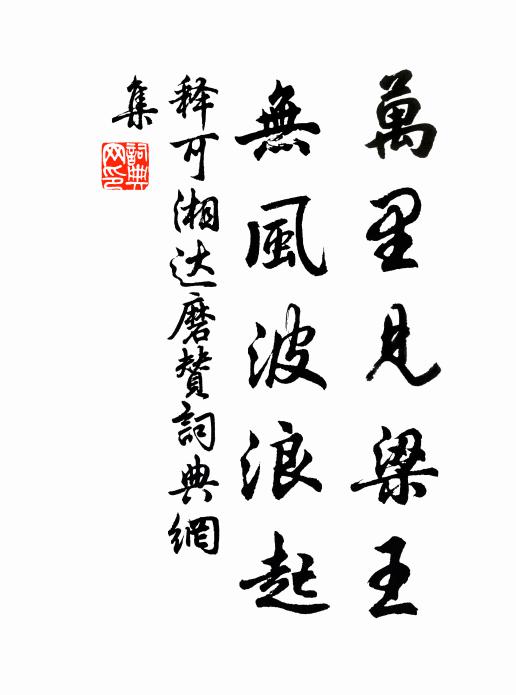 萬里見梁王
無風波浪起
釋可湘达磨贊詞典網
集
詞典
网印